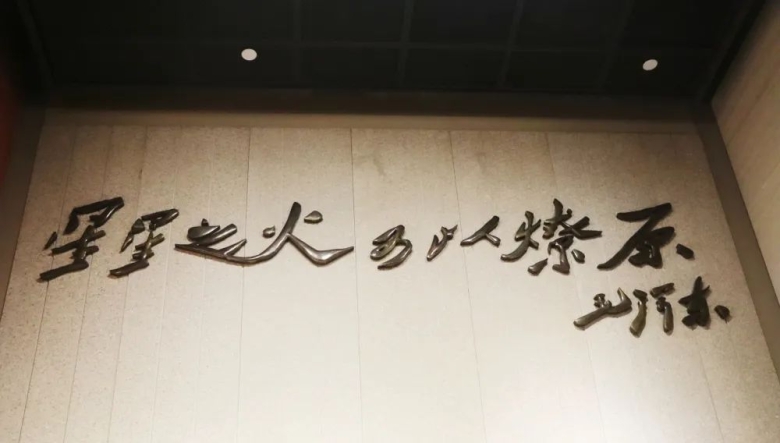 星星之火可以燎原
毛泽东